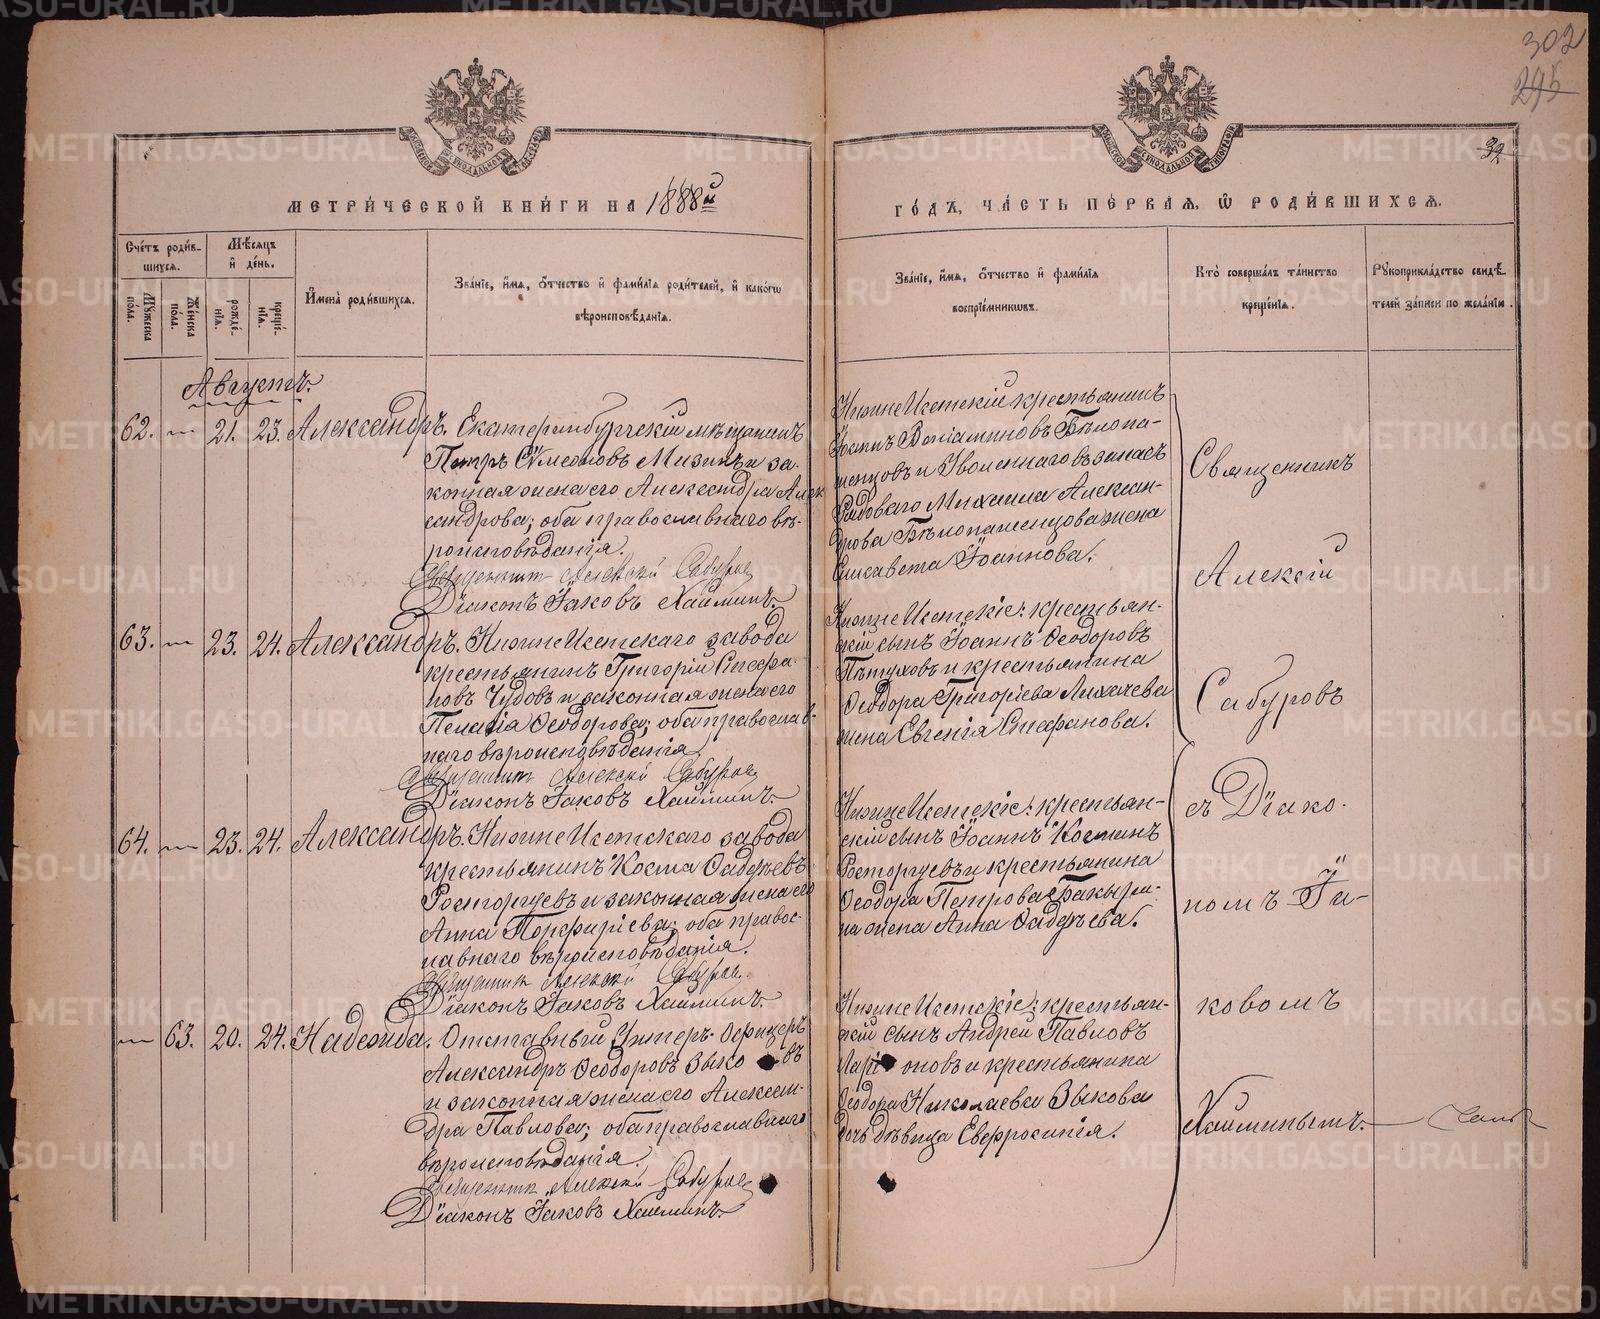 302
295
32
МЕТРИ́ЧЕСКОЙ КНИ́ГИ НА 1888й
ГО́ДЪ, ЧА́СТЬ ПЕ́РВАѦ, Ѡ РОДИ́ВШИХСѦ.
Сче́тъ роди́в-
шихся.
Мѣ́сяцъ
и҆ де́нь.
Мꙋжеска
по́ла.
Же́нска
по́ла.
рожде́-
нїѧ.
креще́-
нїѧ.
И҆мена̀ роди́вшихсѧ.
Зва́нїе, и҆́мѧ, ѻ҆́тчество и҆ фами́лїѧ роди́телей, и҆ како́гѡ
вѣроисповѣ́данїѧ.
Зва́нїе, и҆́мѧ, ѻ҆́тчество и҆ фами́лїѧ
воспрїе́мникѡвъ.
Кто̀ соверша́лъ та́инство
креще́нїѧ.
Рꙋкоприкла́дство свидѣ́-
телей за́писи по жела́нїю.
Августъ.
62. 21. 23. Александръ. Екатеринбургскій мѣщанинъ
Петръ Сѵмеоновъ Мизинъ и за-
конная жена его Александра Алек
сандрова; оба православнаго вѣ-
роисповѣданія.
Священникъ Алексій Сабуровъ
Діаконъ Іаковъ Хайминъ.
Нижне Исетскій крестьянинъ
Іоаннъ Веніаминовъ Бѣлопа-
шенцовъ и Уволеннаго въ запасъ
Рядоваго Михаила Алексан-
дрова Бѣлопашенцова жена
Елисавета Іоаннова.
63. 23. 24. Александръ. Нижне Исетскаго завода
крестьянинъ Григорій Стефа-
новъ Чудовъ и законная жена его
Пелагія Ѳеодорова; оба православ-
наго вѣроисповѣданія.
Священникъ Алексій Сабуровъ
Діаконъ Іаковъ Хайминъ.
Нижне Исетскіе: крестьян-
скій сынъ Іоаннъ Ѳеодоровъ
Пѣтуховъ и крестьянина
Ѳеодора Григоріева Лихачева
жена Евгенія Стефанова.
64. 23. 24. Александръ. Нижне Исетскаго завода
крестьянинъ Косма Ѳаддѣевъ
Росторгуевъ и законная жена его
Анна Порфиріева; оба правос-
лавнаго вѣроисповѣданія.
Священникъ Алексій Сабуровъ
Діаконъ Іаковъ Хайминъ.
Нижне Исетскіе: крестьян-
скій сынъ Іоаннъ Косминъ
Росторгуевъ и крестьянина
Ѳеодора Петрова
на жена Анна Ѳаддѣева.
63. 20. 24. Надежда. Отставный Унтеръ-Офицеръ
Александръ Ѳеодоровъ Зыковъ
и законная жена его Алексан-
дра Павлова; оба православнаго
вѣроисповѣданія.
Священникъ Алексій Сабуровъ
Діаконъ Іаковъ Хайминъ.
Нижне Исетскіе: крестьян-
скій сынъ Андрей Павловъ
Ларіоновъ и крестьянина
Ѳеодора Николаева Зыкова
дочь дѣвица Евфросинія.
Священникъ
Алексій
Сабуровъ
съ Діако-
номъ Іа-
ковомъ
Хайминымъ.